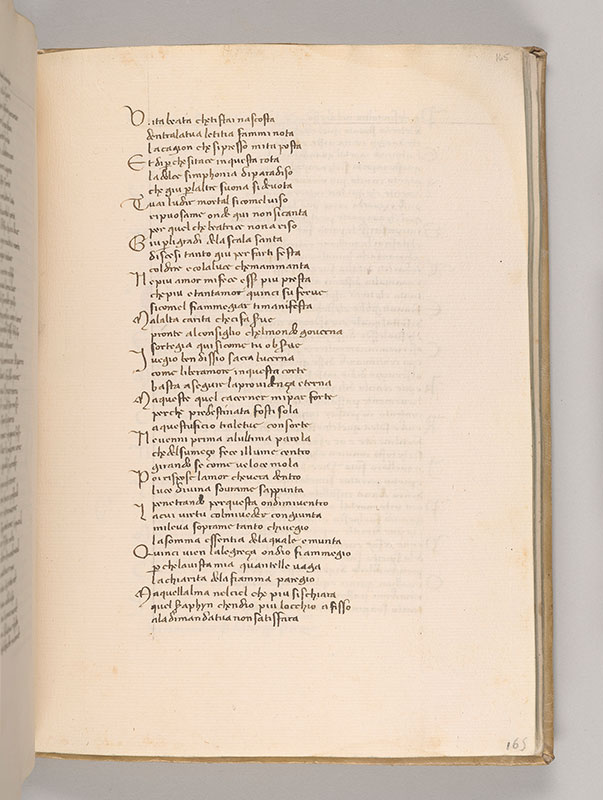 165
Vita beata che ti stai nascosta
dentralatua letitia fammi nota
lacagion che sipresso mita posta
Et di ꝑche sitace in questa rota
la dolce simphonia diparadiso
che giu ꝑlaltre suona sidevota
Tu ai ludir mortal sicomel viso
rispuosame onde qui non sicanta
per quel che beatrice nona riso
Giu ꝑligradi dela scala santa
discesi tanto giu per farti festa
coldire e cola luce chemammanta
Ne piu amor mifece esser piu presta
che piu e tantamor quinci su ferve
sicomel fiammegiar timanifesta
Malalta carita checi fa serve
pronte al consiglio chelmondo governa
sortegia qui sicome tu observe
I vegio ben dissio sacra lucerna
come libero amore in questa corte
basta aseguir la providenza eterna
Ma queste quel cacerner mi par forte
perche predestinata fosti sola
a questuficio tra letue consorte
Ne venni prima alultima parola
che del sumezo fece illume centro
girando se come veloce mola
Poi rispose lamor chevera dentro
luce divina sovrame sappunta
penetrando per questa ondinventro
La cui virtu colmiveder congiunta
mileva soprame tanto chivegio
la somma essentia dela quale emunta
Quinci vien lalegreza ondio fiammegio
ꝑ chelavista mia quantelle vaga
la chiarita dela fiamma paregio
Ma quellalma nelciel che piu si schiara
quel seraphyn chendio piu locchio a fisso
ala dimandatua non satisfara
165